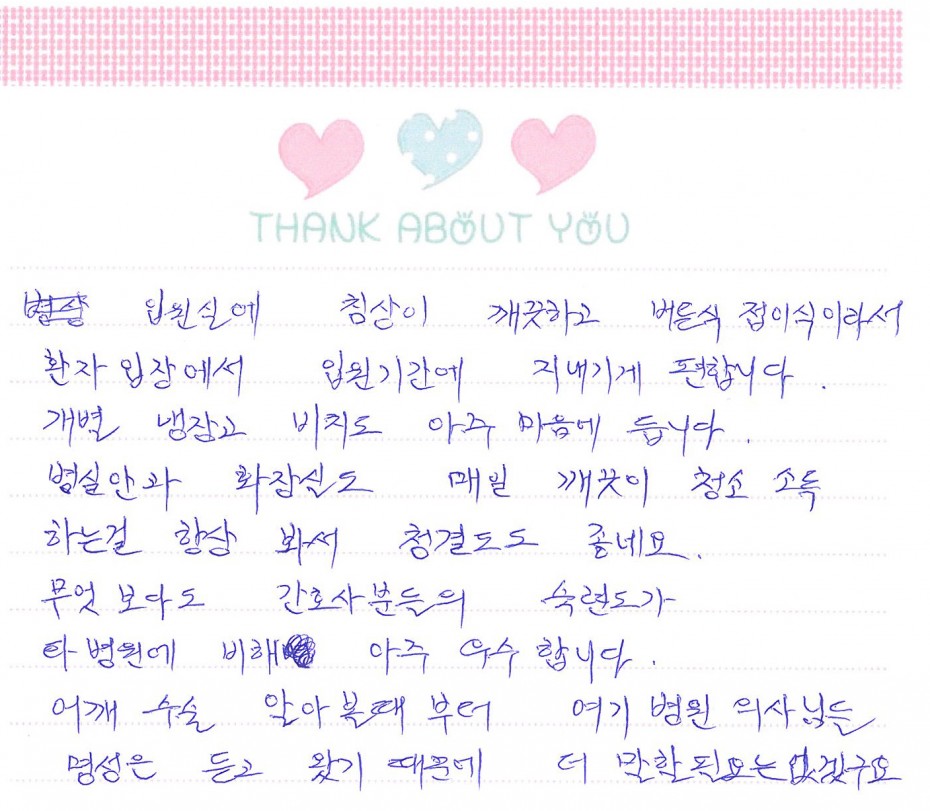 THANK ABOUT YOU
입원실에 침상이 깨끗하고 버튼식 접이식이라서
환자 입장에서 입원기간에 지내기게 편합니다.
개별 냉장고 비치도 아주 마음에 듭니다.
병실안과 화장실도 매일 깨끗이 청소 소득
하는걸 항상 봐서 청결도도 좋네요.
무엇 보다도 간호사분들의 숙련도가
타 병원에 비해 아주 우수 합니다.
어깨 수술 알아볼때 부터 여기 병원 의사님들
명성은 듣고 왔기 때문에 더 말할 필요는 없겠구요